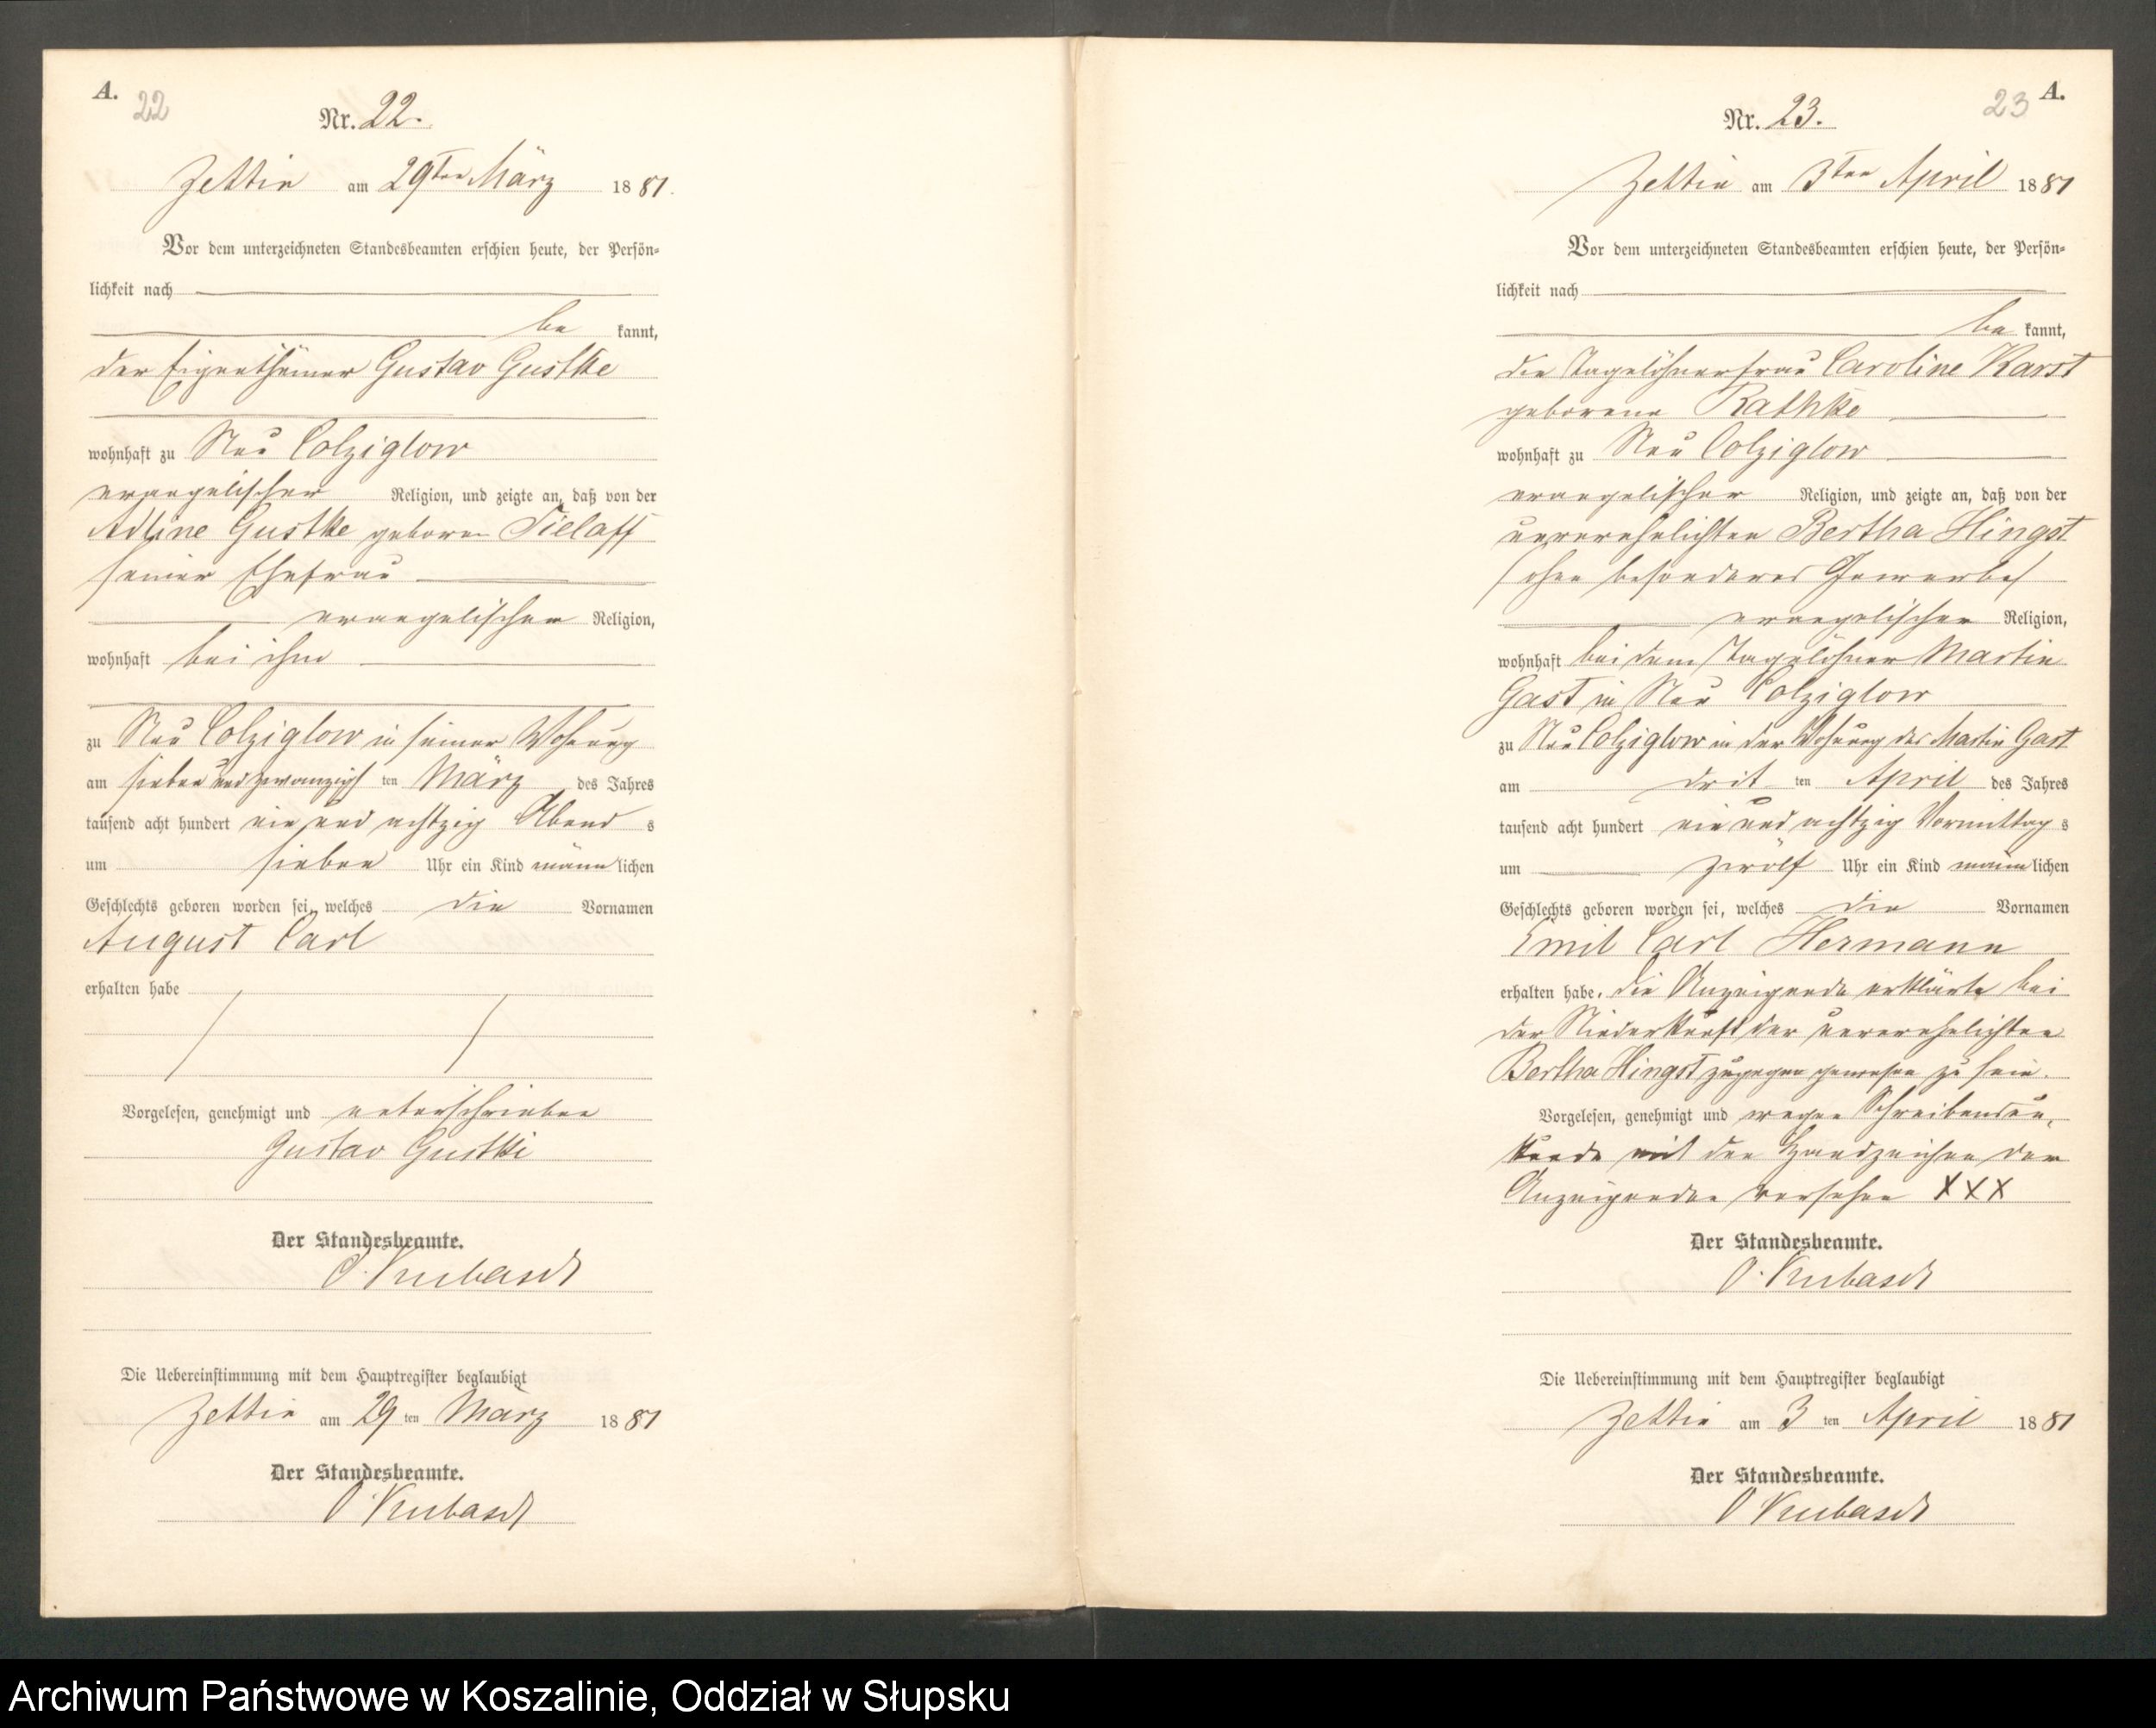 A.
22
Nr. 22.
Zettin am 29ten März 1881.
Vor dem unterzeichneten Standesbeamten erschien heute, der Persön-
lichkeit nach
be kannt,
der Eigenthümer Gustav Gustke
wohnhaft zu Neu Colziglow
evangelischer Religion, und zeigte an, daß von der
Adline Gustke geboren Tielaff
seiner Ehefrau
evangelischer Religion,
wohnhaft bei ihm
zu Neu Colziglow in seiner Wohnung
am sieben und zwanzigs ten März des Jahres
tausend acht hundert ein und achtzig Abend s
um sieben Uhr ein Kind männ lichen
Geschlechts geboren worden sei, welches die Vornamen
August Carl
erhalten habe
Vorgelesen, genehmigt und unterschrieben
Gustav Gustke
Der Standesbeamte.
O. Kubasch
Die Uebereinstimmung mit dem Hauptregister beglaubigt
Zettin am 29 ten März 1881
Der Standesbeamte.
O. Kubasch
23
A.
Nr. 23.
Zettin am 3ten April 1881
Vor dem unterzeichneten Standesbeamten erschien heute, der Persön-
lichkeit nach
be kannt,
die Tagelöhnerfrau Caroline Karst
geborene Rathke
wohnhaft zu Neu Colziglow
evangelischer Religion, und zeigte an, daß von der
unverehelichten Bertha Hingst
/ohne besonderes Gewerbe/
evangelischer Religion,
wohnhaft bei dem Tagelöhner Martin
Gast in Neu Colziglow
zu Neu Colziglow in der Wohnung des Martin Gast
am drit ten April des Jahres
tausend acht hundert ein und achtzig Vormittag s
um zwölf Uhr ein Kind männ lichen
Geschlechts geboren worden sei, welches die Vornamen
Emil Carl Hermann
erhalten habe. die Anzeigende erklärte bei
der Niederkunft der unverehelichten
Bertha Hingst zugegen gewesen zu sein.
Vorgelesen, genehmigt und wegen Schreibensun-
kunde mit den Handzeichen der
Anzeigenden versehen XXX
Der Standesbeamte.
O. Kubasch
Die Uebereinstimmung mit dem Hauptregister beglaubigt
Zettin am 3 ten April 1881
Der Standesbeamte.
O Kubasch
Archiwum Państwowe w Koszalinie, Oddział w Słupsku